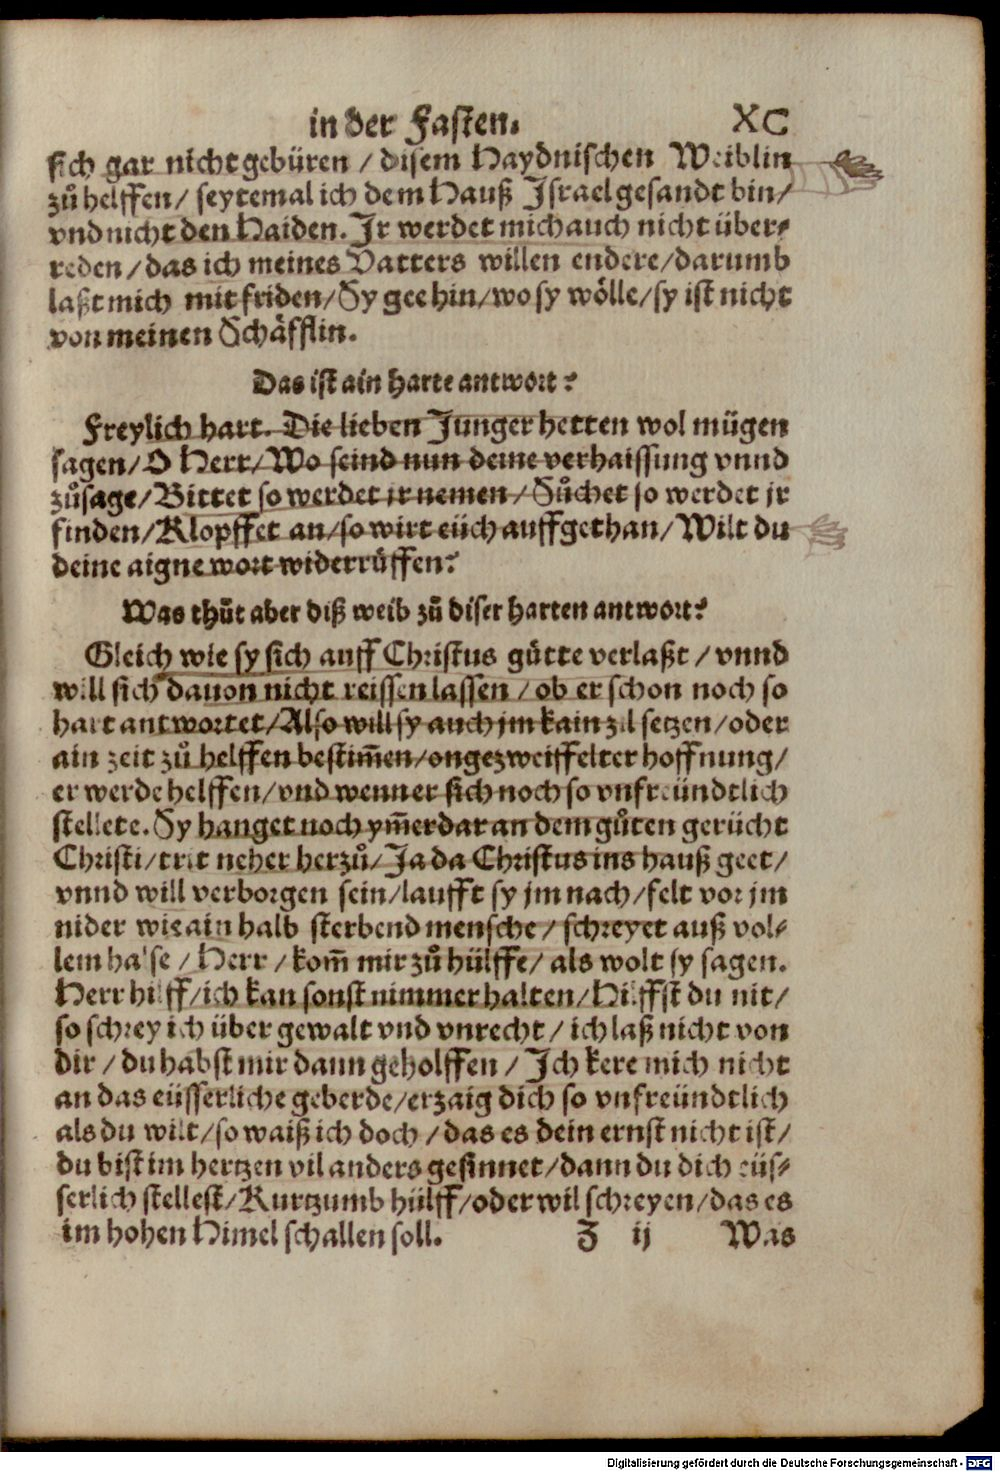 in der Fasten. XC
sich gar nicht gebüren / disem Haydnischen Weiblin
zůhelffen / seytemal ich dem Hauß Israel gesandt bin /
vnd nicht den Haiden. Ir werdet mich auch nicht über-
reden / das ich meines Vatters willen endere / darumb
laßt mich mit friden / Sy gee hin / wo sy wölle / sy ist nicht
von meinen Schäfflin.
Das ist ain harte antwort?
Freylich hart. Die lieben Junger hetten wol mügen
sagen / O Herr / Wo seind nun deine verhaissung vnnd
zůsage / Bittet so werdet ir nemen / Sůchet so werdet jr
finden / Klopffet an / so wirt eüch auffgethan / Wilt du
deine aigne wort widerrůffen?
Was thůt aber diß weib zů diser harten antwort?
Gleich wie sy sich auff Christus gůtte verlaßt / vnnd
will sich dauon nicht reissen lassen / ob er schon noch so
hart antwortet / Also will sy auch jm kain zil setzen / oder
ain zeit zů helffen bestim̄en / ongezweiffelter hoffnung /
er werde helffen / vnd wenner sich noch so vnfreündtlich
stellete. Sy hanget noch ym̄erdar an dem gůten gerücht
Christi / trit neher herzů / Ja da Christus ins hauß geet /
vnnd will verborgen sein / laufft sy jm nach / felt vor jm
nider wie ain halb sterbend mensche / schreyet auß vol-
lem halse / Herr / kom̄ mir zů hülffe / als wolt sy sagen.
Herr hilff / ich kan sonst nimmer halten / Hilffst du nit /
so schrey ich über gewalt vnd vnrecht / ich laß nicht von
dir / du habst mir dann geholffen / Ich kere mich nicht
an das eüsserliche geberde / erzaig dich so vnfreündtlich
als du wilt / so waiß ich doch / das es dein ernst nicht ist /
du bist im hertzen vil anders gesinnet / dann du dich eüs-
serlich stellest / Kurtzumb hülff / oder wil schreyen / das es
im hohen Himel schallen soll. Z ij Was
Digitalisierung gefördert durch die Deutsche Forschungsgemeinschaft - DFG